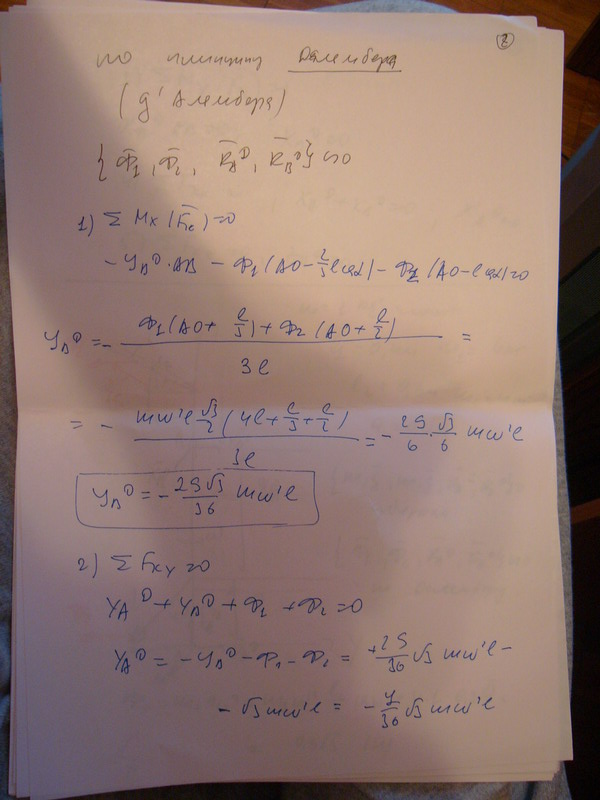 2
по принципу Даламбера
(д'Аламбера)
{Φ̅₁, Φ̅₂, R̅_A^D, R̅_B^D} ∾ 0
1) Σ Mx (F̅к) = 0
- Y_B^D · AB - Φ₁ (AO - 2/3 l cosα) - Φ₂ (AO - l cosα) = 0
Y_B^D = - (Φ₁ (AO + l/3) + Φ₂ (AO + l/2)) / 3l =
= - (mω²l √3/2 (4l + l/3 + l/2)) / 3l = - 29/6 · √3/6 mω²l
Y_B^D = - 29√3/36 mω²l
2) Σ Fкy = 0
Y_A^D + Y_B^D + Φ₁ + Φ₂ = 0
Y_A^D = - Y_B^D - Φ₁ - Φ₂ = + 29/36 √3 mω²l -
- √3 mω²l = - 7/36 √3 mω²l